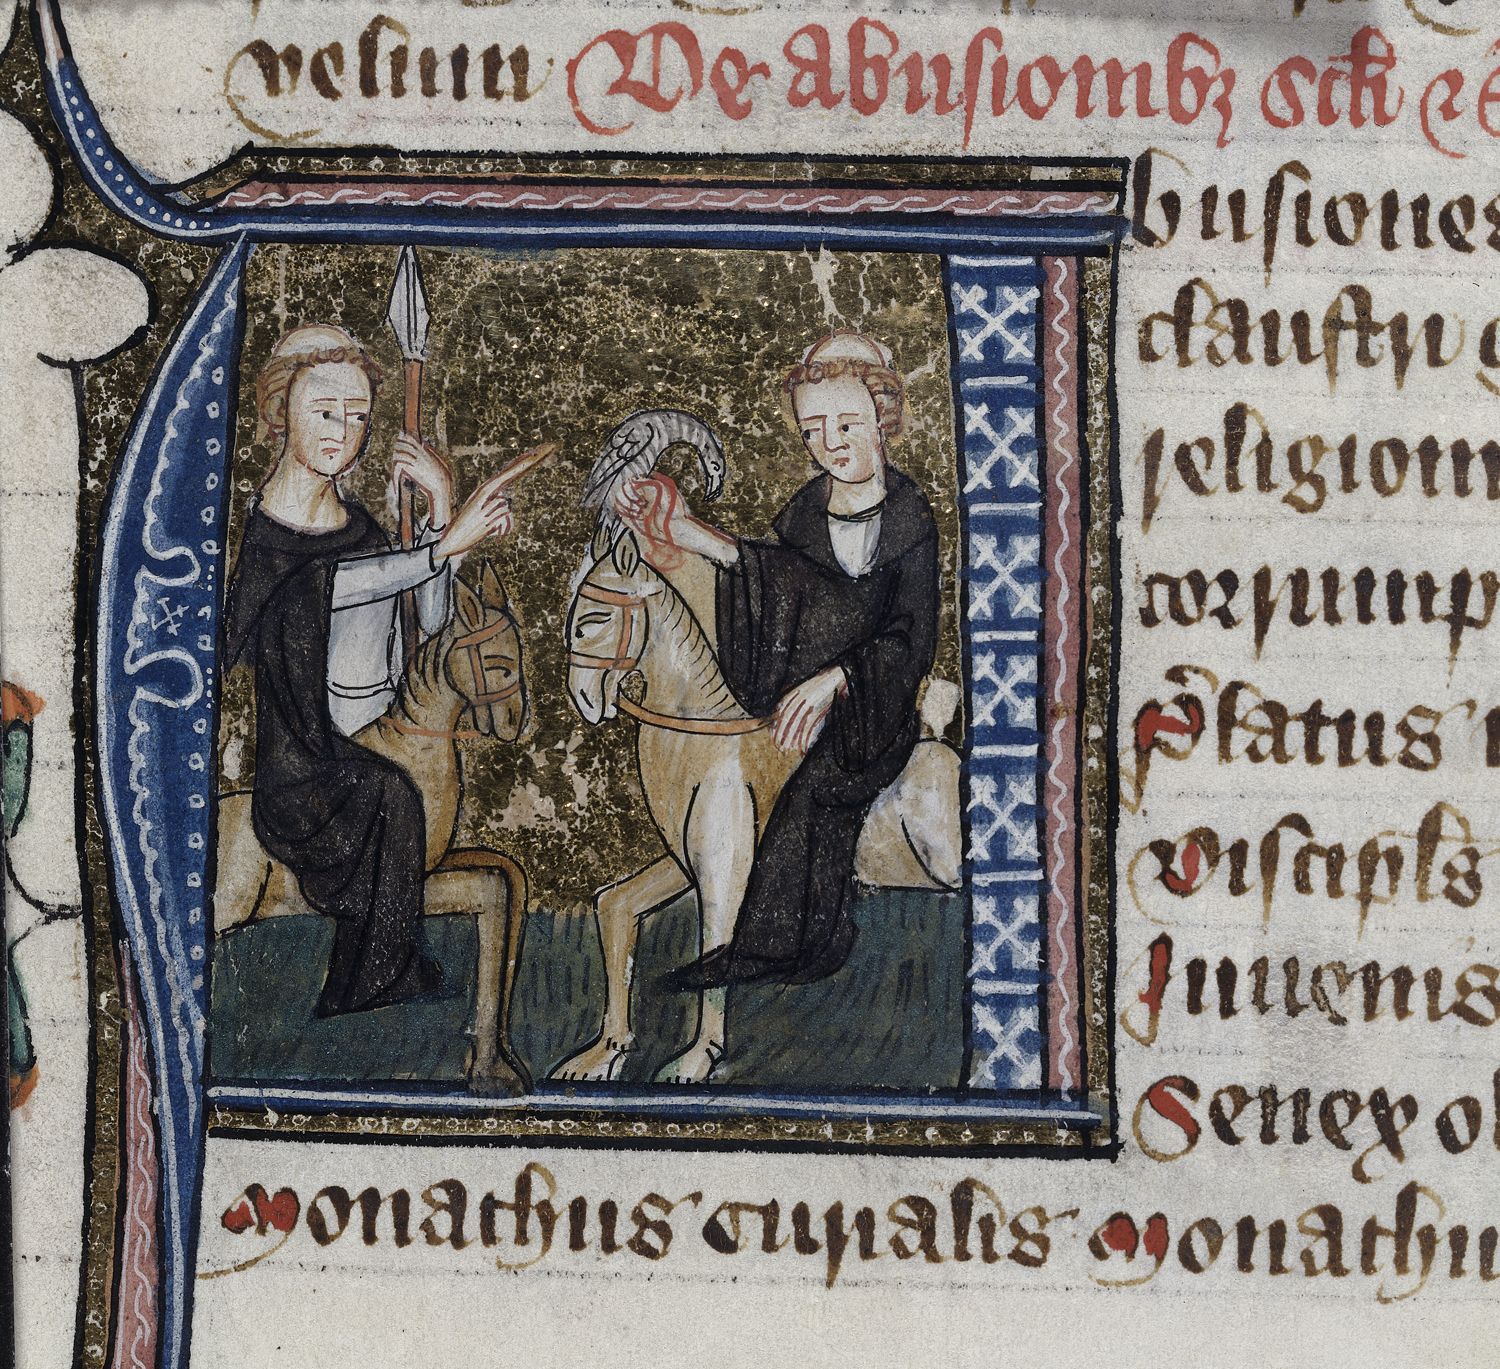 vesim De abusionibz
busiones
claustri
religioni
corrump
Prelatus
discipls
Iuuenis
Senex
Monachus curialis Monachu